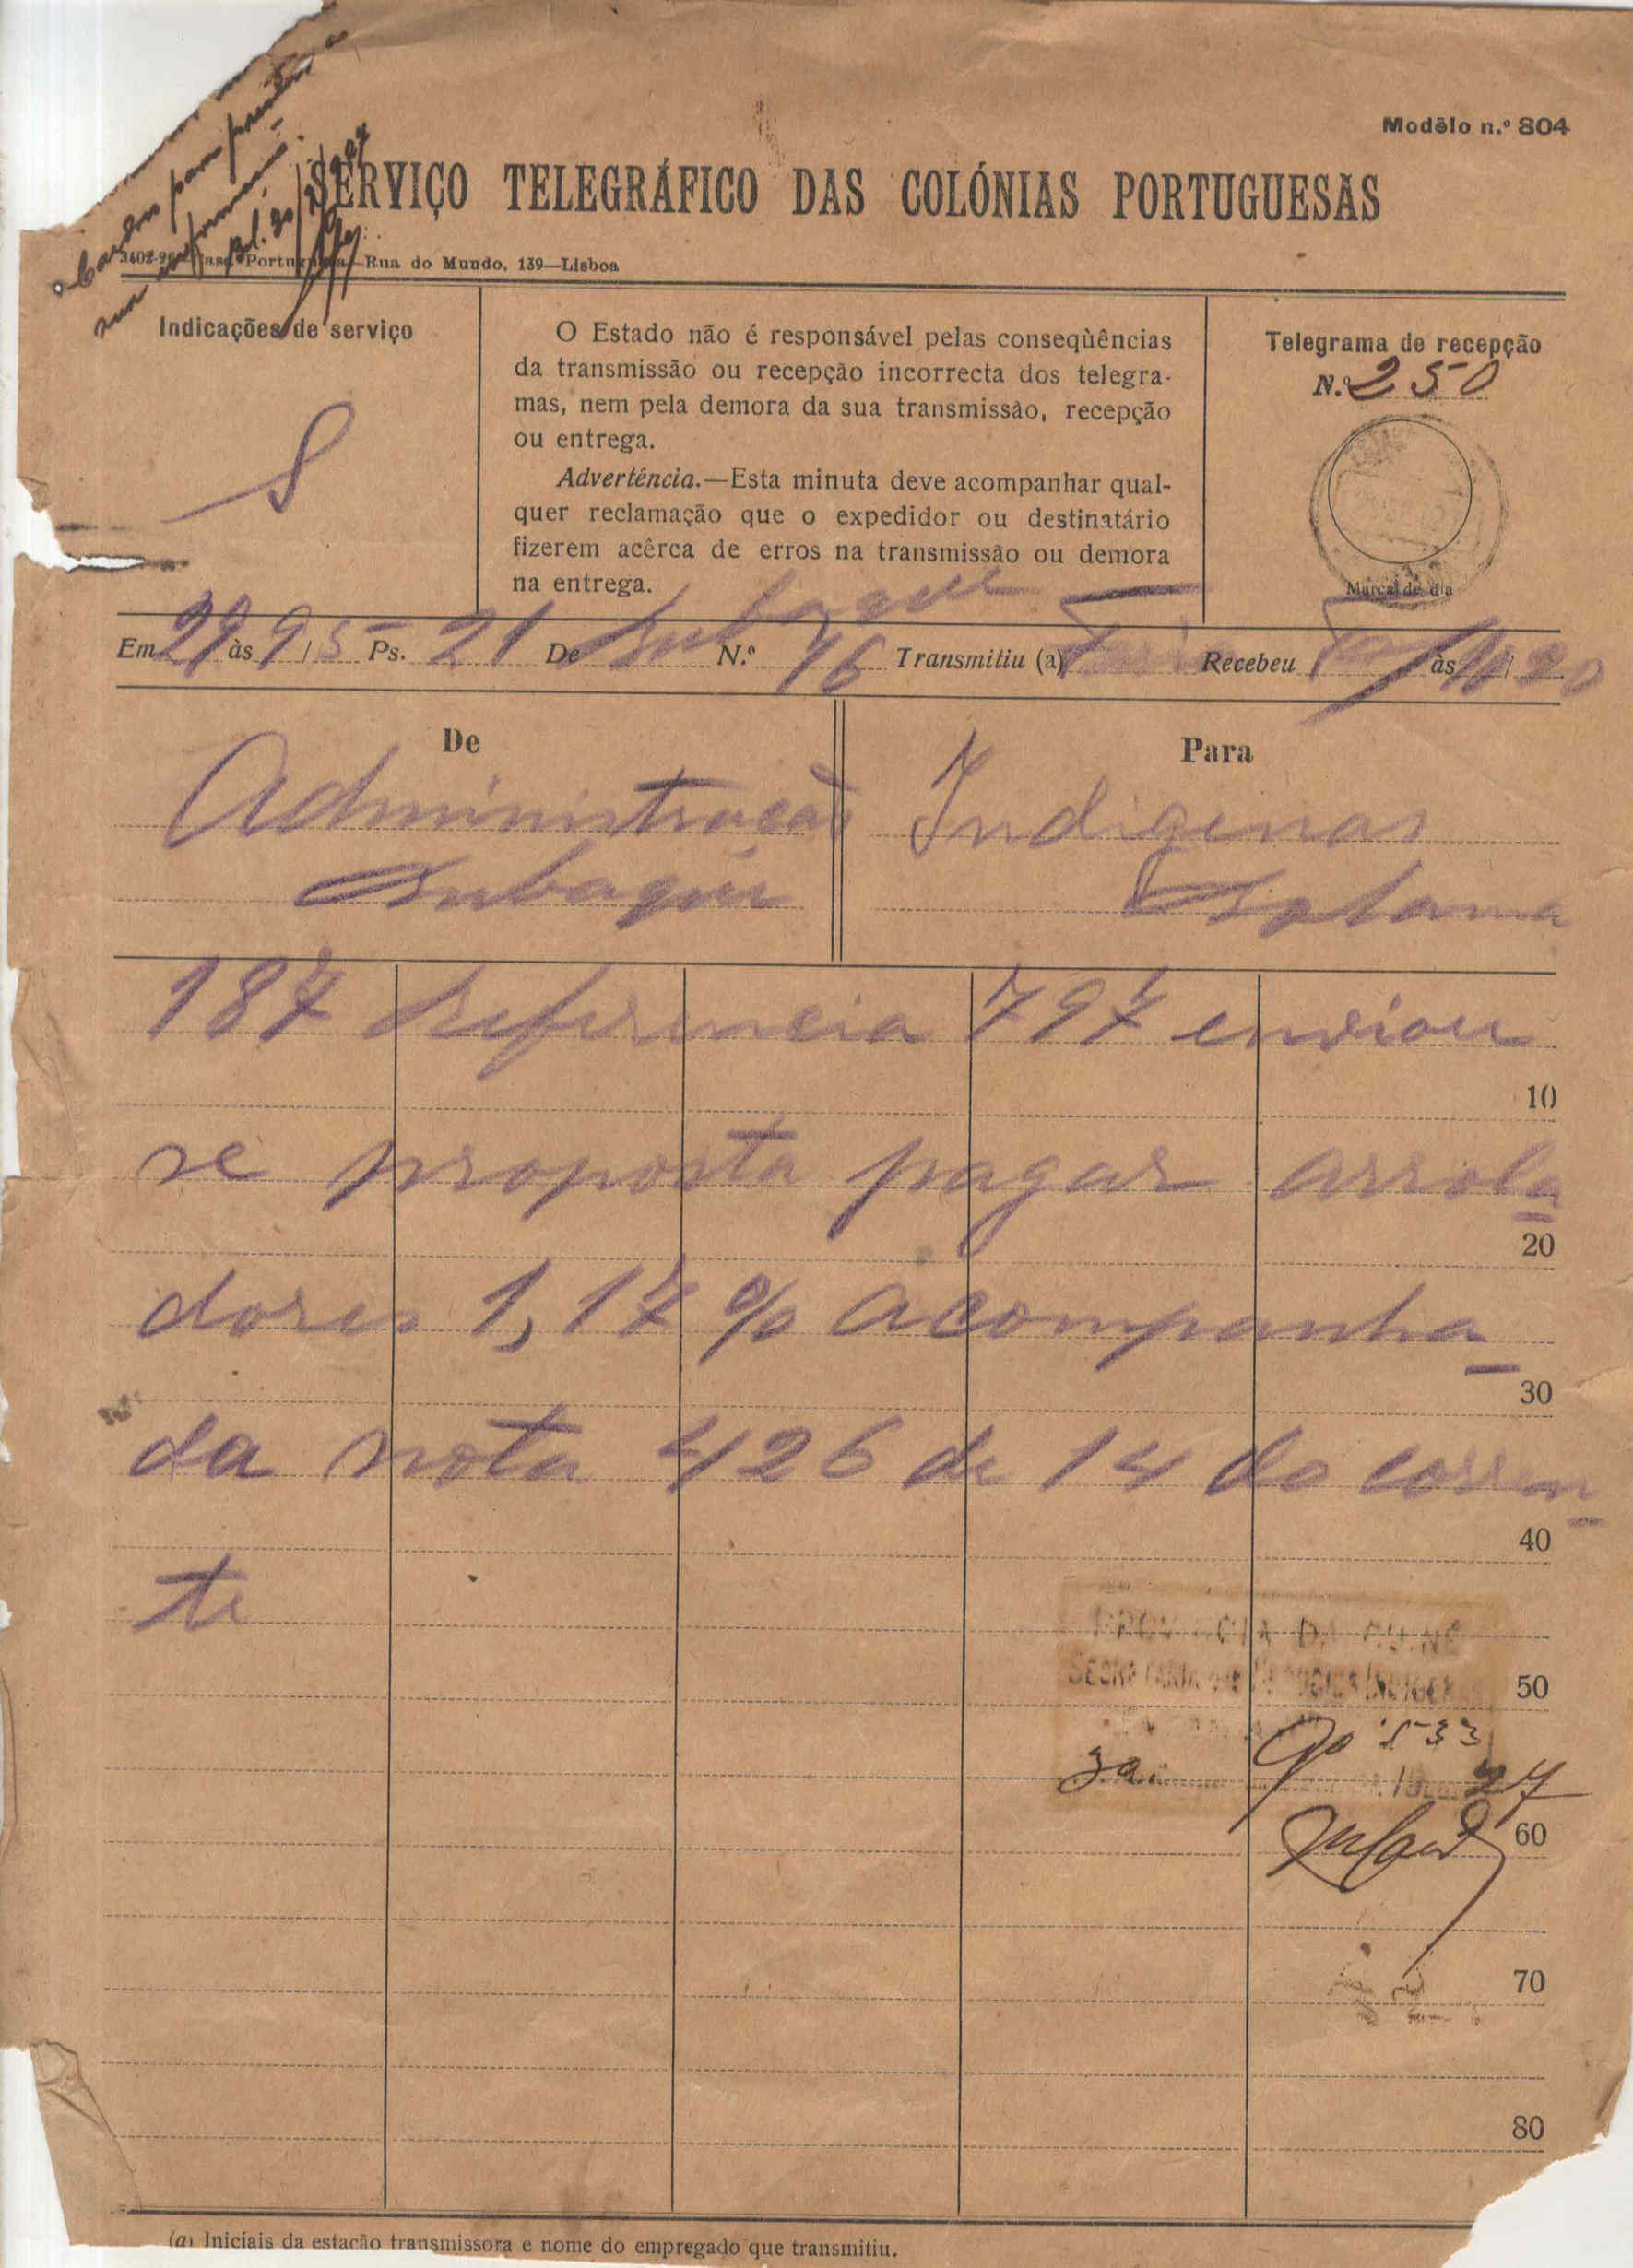 Modêlo n.º 804
SERVIÇO TELEGRÁFICO DAS COLÓNIAS PORTUGUESAS
Rua do Mundo, 139—Lisboa
Indicações de serviço
S
O Estado não é responsável pelas conseqùências
da transmissão ou recepção incorrecta dos telegra-
mas, nem pela demora da sua transmissão, recepção
ou entrega.
Advertência.—Esta minuta deve acompanhar qual-
quer reclamação que o expedidor ou destinatário
fizerem acêrca de erros na transmissão ou demora
na entrega.
Telegrama de recepção
N.º 250
Marca de dia
Em 29 às 9/5 Ps. 21 De Bubaque N.º 16 Transmitiu (a) Recebeu às 10/20
De
Administração
Bubaque
Para
Indigenas
Bolama
187 referencia 797 enviou
10
se proposta pagar arrola
20
dores 1,17 % acompanha
30
da nota 426 de 14 do corren
40
te
50
30 9º 533
1927
60
70
80
(a) Iniciais da estação transmissora e nome do empregado que transmitiu.